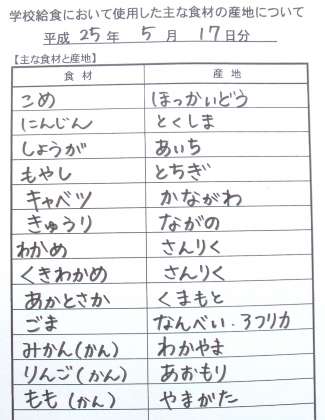 学校給食において使用した主な食材の産地について
平成 25 年 5 月 17 日分
【主な食材と産地】
食材 産地
こめ ほっかいどう
にんじん とくしま
しょうが あいち
もやし とちぎ
キャベツ かながわ
きゅうり ながの
わかめ さんりく
くきわかめ さんりく
あかとさか くまもと
ごま なんべい・アフリカ
みかん(かん) わかやま
りんご(かん) あおもり
もも(かん) やまがた